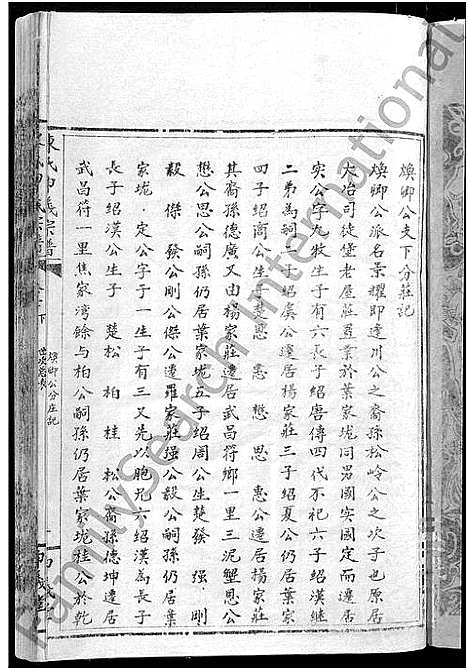 煥卿公支下分莊記
煥卿公派名景耀即達川公之裔孫松岭公之次子也原居
大冶司徒堡老屋莊置業於葉家垅同男國实國定而邊居
实公字九牧生子有六長子紹唐傳四代不祀六子紹漢継
二弟為祠一子紹虞公遷居楊家莊三子紹夏公仍居葉家
四子紹商公生子楚惠 憲 懋 思 惠公遷居楊家莊
其裔孫德廣又由楊家莊遷居武昌符鄉一里三泥壟恩公
懋公思公嗣孫仍居葉家垅五子紹周公生楚發 强 剛
毅 傑 發公剛公傑公遷羅家莊强公毅公嗣孫仍居葉
家垅 定公字于一生子有三又先以胞兄六紹漢為長子
長子紹漢公生子 楚松 柏 桂 松公裔孫德坤遷居
武昌符一里焦家湾餘与柏公嗣孫仍居葉家垅桂公於乾
陳氏四義宗譜
煥卿公分庄記
FamilySearch International